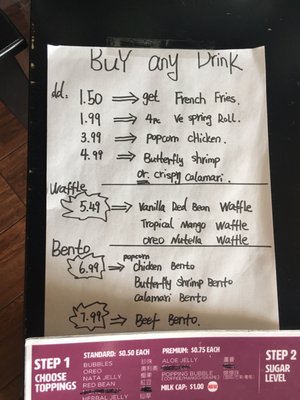 BUY any DRINK
dd. 1.50 ⇒ get French Fries.
1.99 ⇒ 4pc Ve spring Roll.
3.99 ⇒ popcorn chicken.
4.99 ⇒ Butterfly shrimp
or. crispy calamari.
Waffle
5.49 → Vanilla Red Bean Waffle
Tropical Mango Waffle
oreo Nutella Waffle
Bento
6.99 → popcorn chicken Bento
Butterfly Shrimp Bento
calamari Bento
7.99 → Beef Bento.
STEP 1
CHOOSE
TOPPINGS
STANDARD: $0.50 EACH
BUBBLES 珍珠
OREO
NATA JELLY 椰果
RED BEAN 紅豆
HERBAL JELLY 仙草
PREMIUM: $0.75 EACH
ALOE JELLY 蘆薈
POPPING BUBBLE
(COFFEE/MANGO/GRAPE)
MILK CAP: $1.00
STEP 2
SUGAR
LEVEL